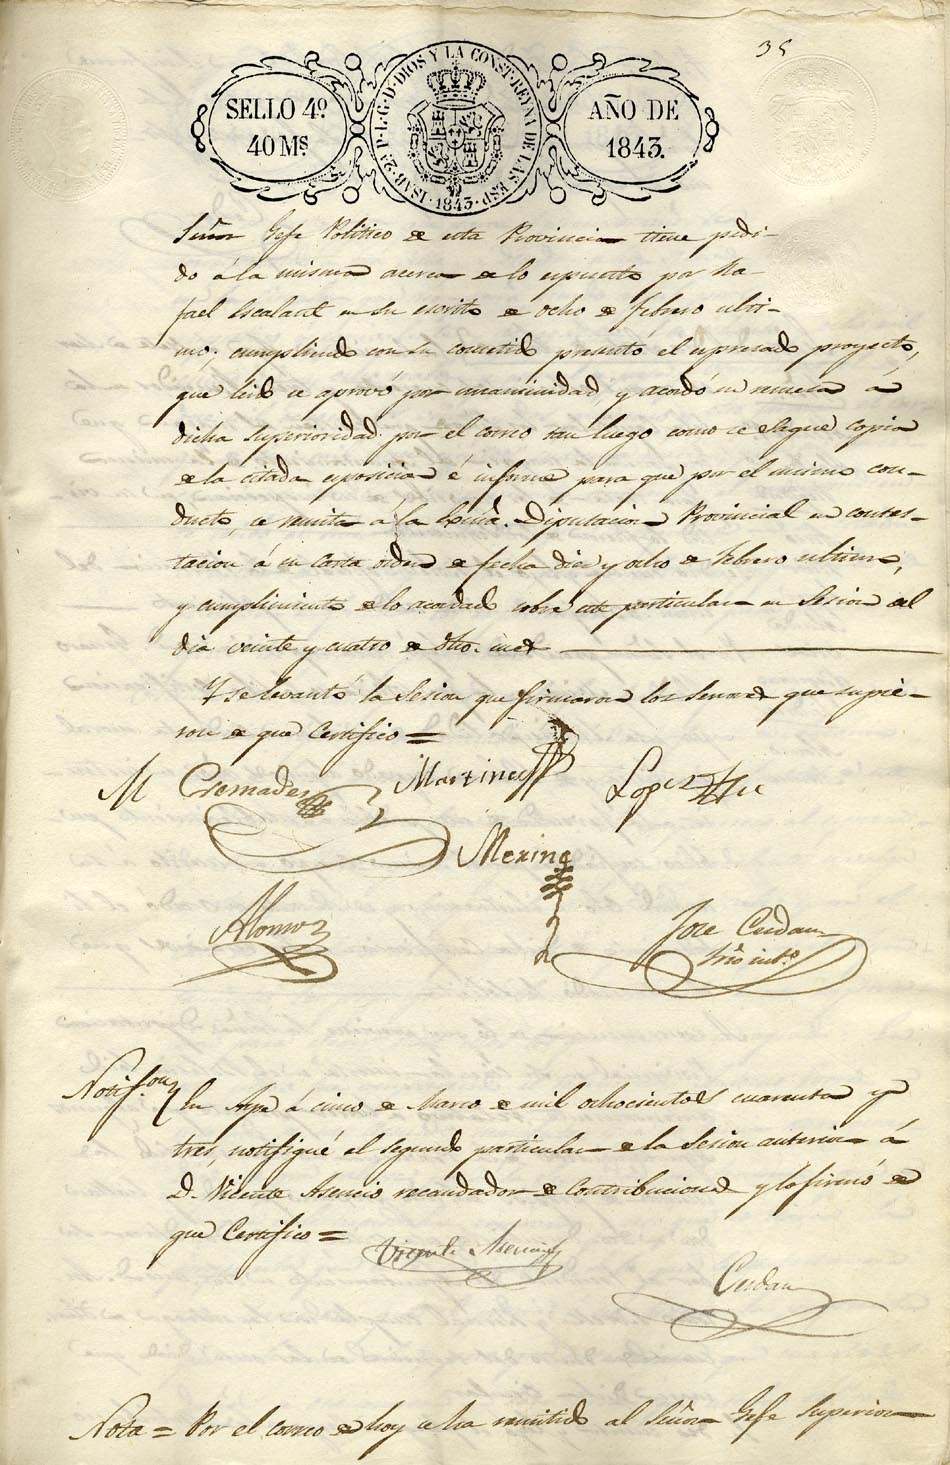 35
SELLO 4º
40 Ms
ISAB. 2ª P. L. G. D. DIOS Y LA CONST. REYNA DE LAS ESP. 1843.
AÑO DE
1843.
Señor Gefe Politico de esta Provincia tiene pedi-
do á la misma acerca de lo espuesto por Ra-
fael Escalant en su escrito de ocho de febrero ulti-
mo; cumpliendo con su cometido presentó el espresado proyecto,
que leido se aprovó por unanimidad y acordó se remita á
dicha superioridad por el correo tan luego como se saque copia
de la citada esposicion é informe para que por el mismo con-
ducto, se remita á la Exma. Diputacion Provincial en contes-
tacion á su carta orden de fecha diez y ocho de Febrero ultimo,
y cumplimiento de lo acordado sobre este particular en Sesion del
dia veinte y cuatro de dho. mes
Y se levantó la Sesion que firmaron los Señores que supie-
ron de que Certifico =
M Cremades
Martinez
Lopez
Merino
Alonso
Jose Cerdan
Srio int.o
Notif.on
En Aspe á cinco de Marzo de mil ochocientos cuarenta y
tres, notifiqué el segundo particular de la Sesion anterior á
D. Vicente Asencio recaudador de Contribuciones y lo firmó de
que Certifico =
Vicente Asencio
Cerdan
Nota = Por el correo de hoy se ha remitido al Señor Gefe Superior